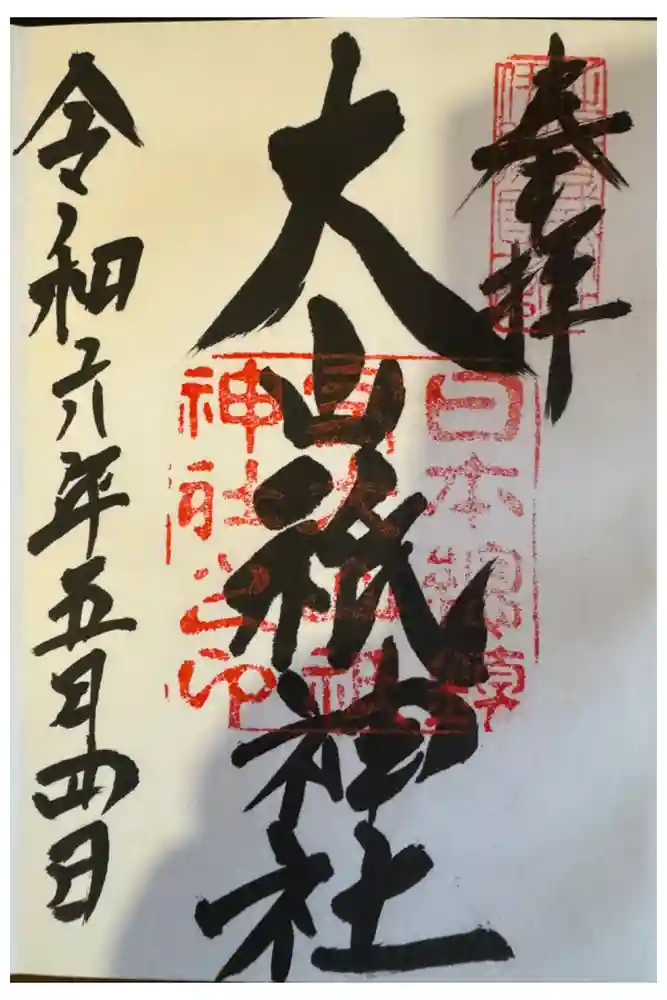 奉拝
大山祇神社
令和六年五月四日
日本総鎮
守大山祇
神社之印